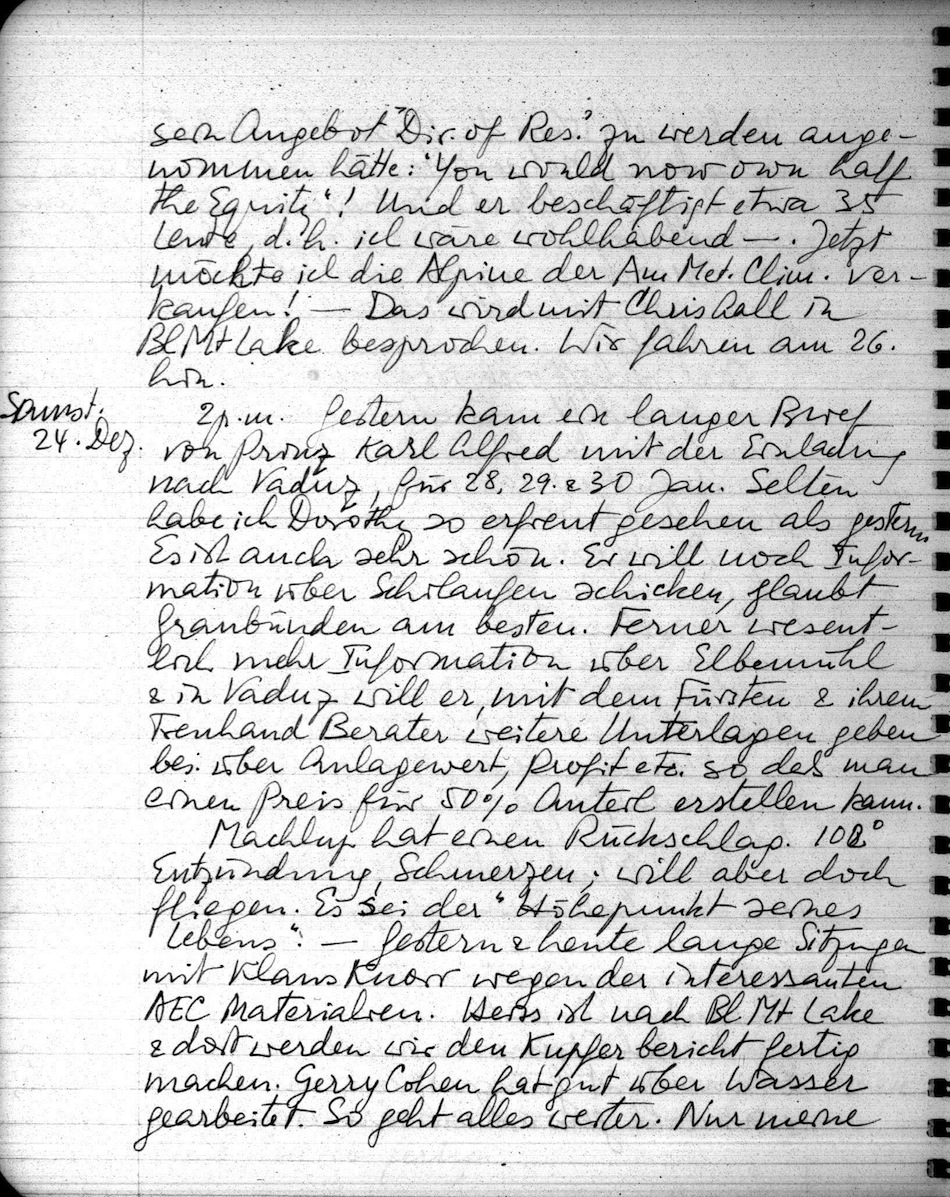 sein Angebot "Dir. of Res." zu werden ange-
nommen hätte: "You would now own half
the Equity"! Und er beschäftigt etwa 35
Leute, d.h. ich wäre wohlhabend —. Jetzt
möchte ich die Alpine der Am Met. Clim. ver-
kaufen! — Das wird mit Chris Hall in
Bl Mt Lake besprochen. Wir fahren am 26.
hin.
Samst.
24. Dez.
2 p.m. Gestern kam ein langer Brief
von Prinz Karl Alfred mit der Einladung
nach Vaduz, für 28, 29. & 30 Jan. Selten
habe ich Dorothy so erfreut gesehen als gestern
Es ist auch sehr schön. Er will noch Infor-
mation über Schilaufen schicken, glaubt
Graubünden am besten. Ferner wesent-
lich mehr Information über Elbemühl
& in Vaduz will er, mit dem Fürsten & ihrem
Treuhand Berater weitere Unterlagen geben
bes. über Anlagewert, Profit etc. so daß man
einen Preis für 50% Anteil erstellen kann.
Machlup hat einen Rückschlag. 102°
Entzündung, Schmerzen; will aber doch
fliegen. Es sei der "Höhepunkt seines
Lebens". — Gestern & heute lange Sitzungen
mit Klaus Knorr wegen der interessanten
AEC Materialien. Heiss ist nach Bl Mt Lake
& dort werden wir den Kupferbericht fertig
machen. Gerry Cohen hat gut über Wasser
gearbeitet. So geht alles weiter. Nur meine